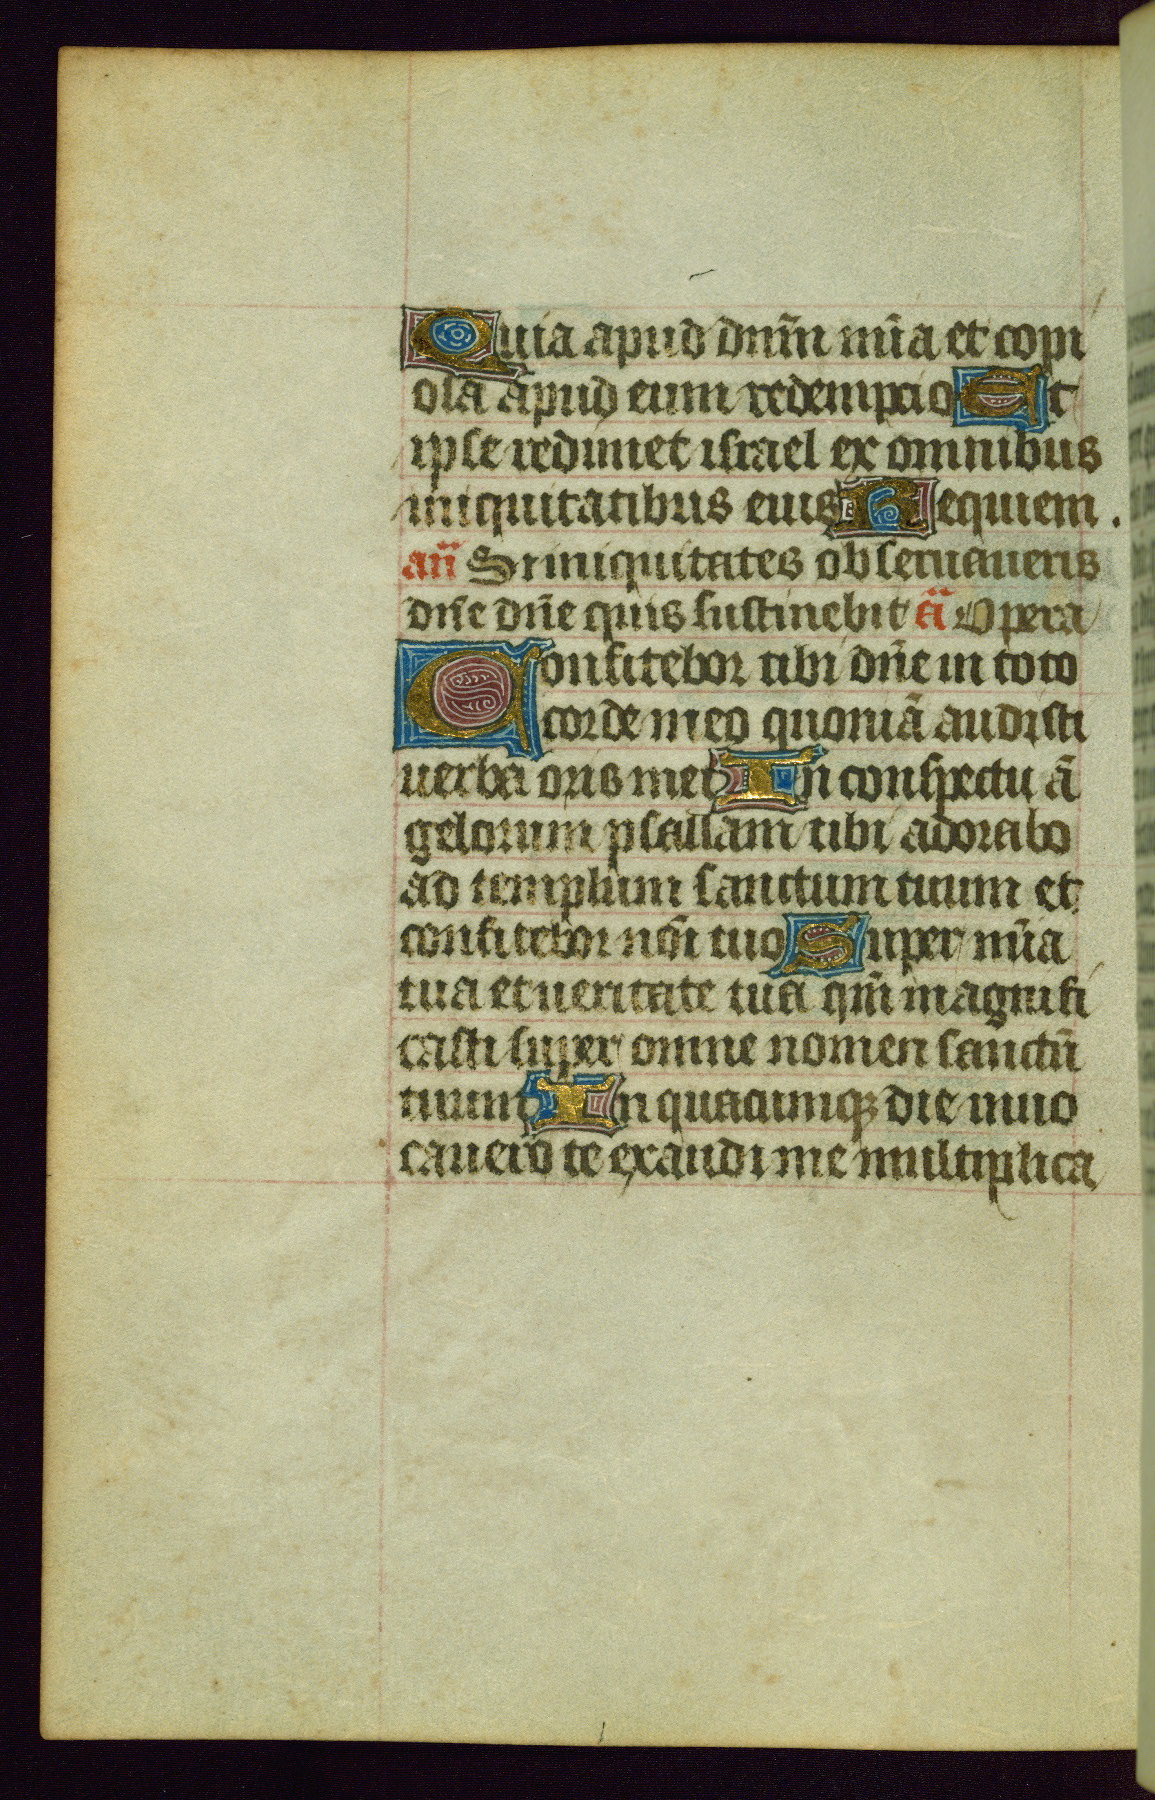 Quia apud dn̄m mīa et copi
osa apud eum redempcio Et
ipse redimet israel ex omnibus
iniquitatibus eius Requiem.
an̄ Si iniquitates obseruaueris
dn̄e dn̄e quis sustinebit ā Opera
Confitebor tibi dn̄e in toto
corde meo quoniā audisti
uerba oris mei In conspectu ā
gelorum psallam tibi adorabo
ad templum sanctum tuum et
confitebor nōi tuo Super mīa
tua et ueritate tua qm̄ magnifi
casti super omne nomen sanctū
tuum In quacumqꝫ die inuo
cauero te exaudi me multiplica